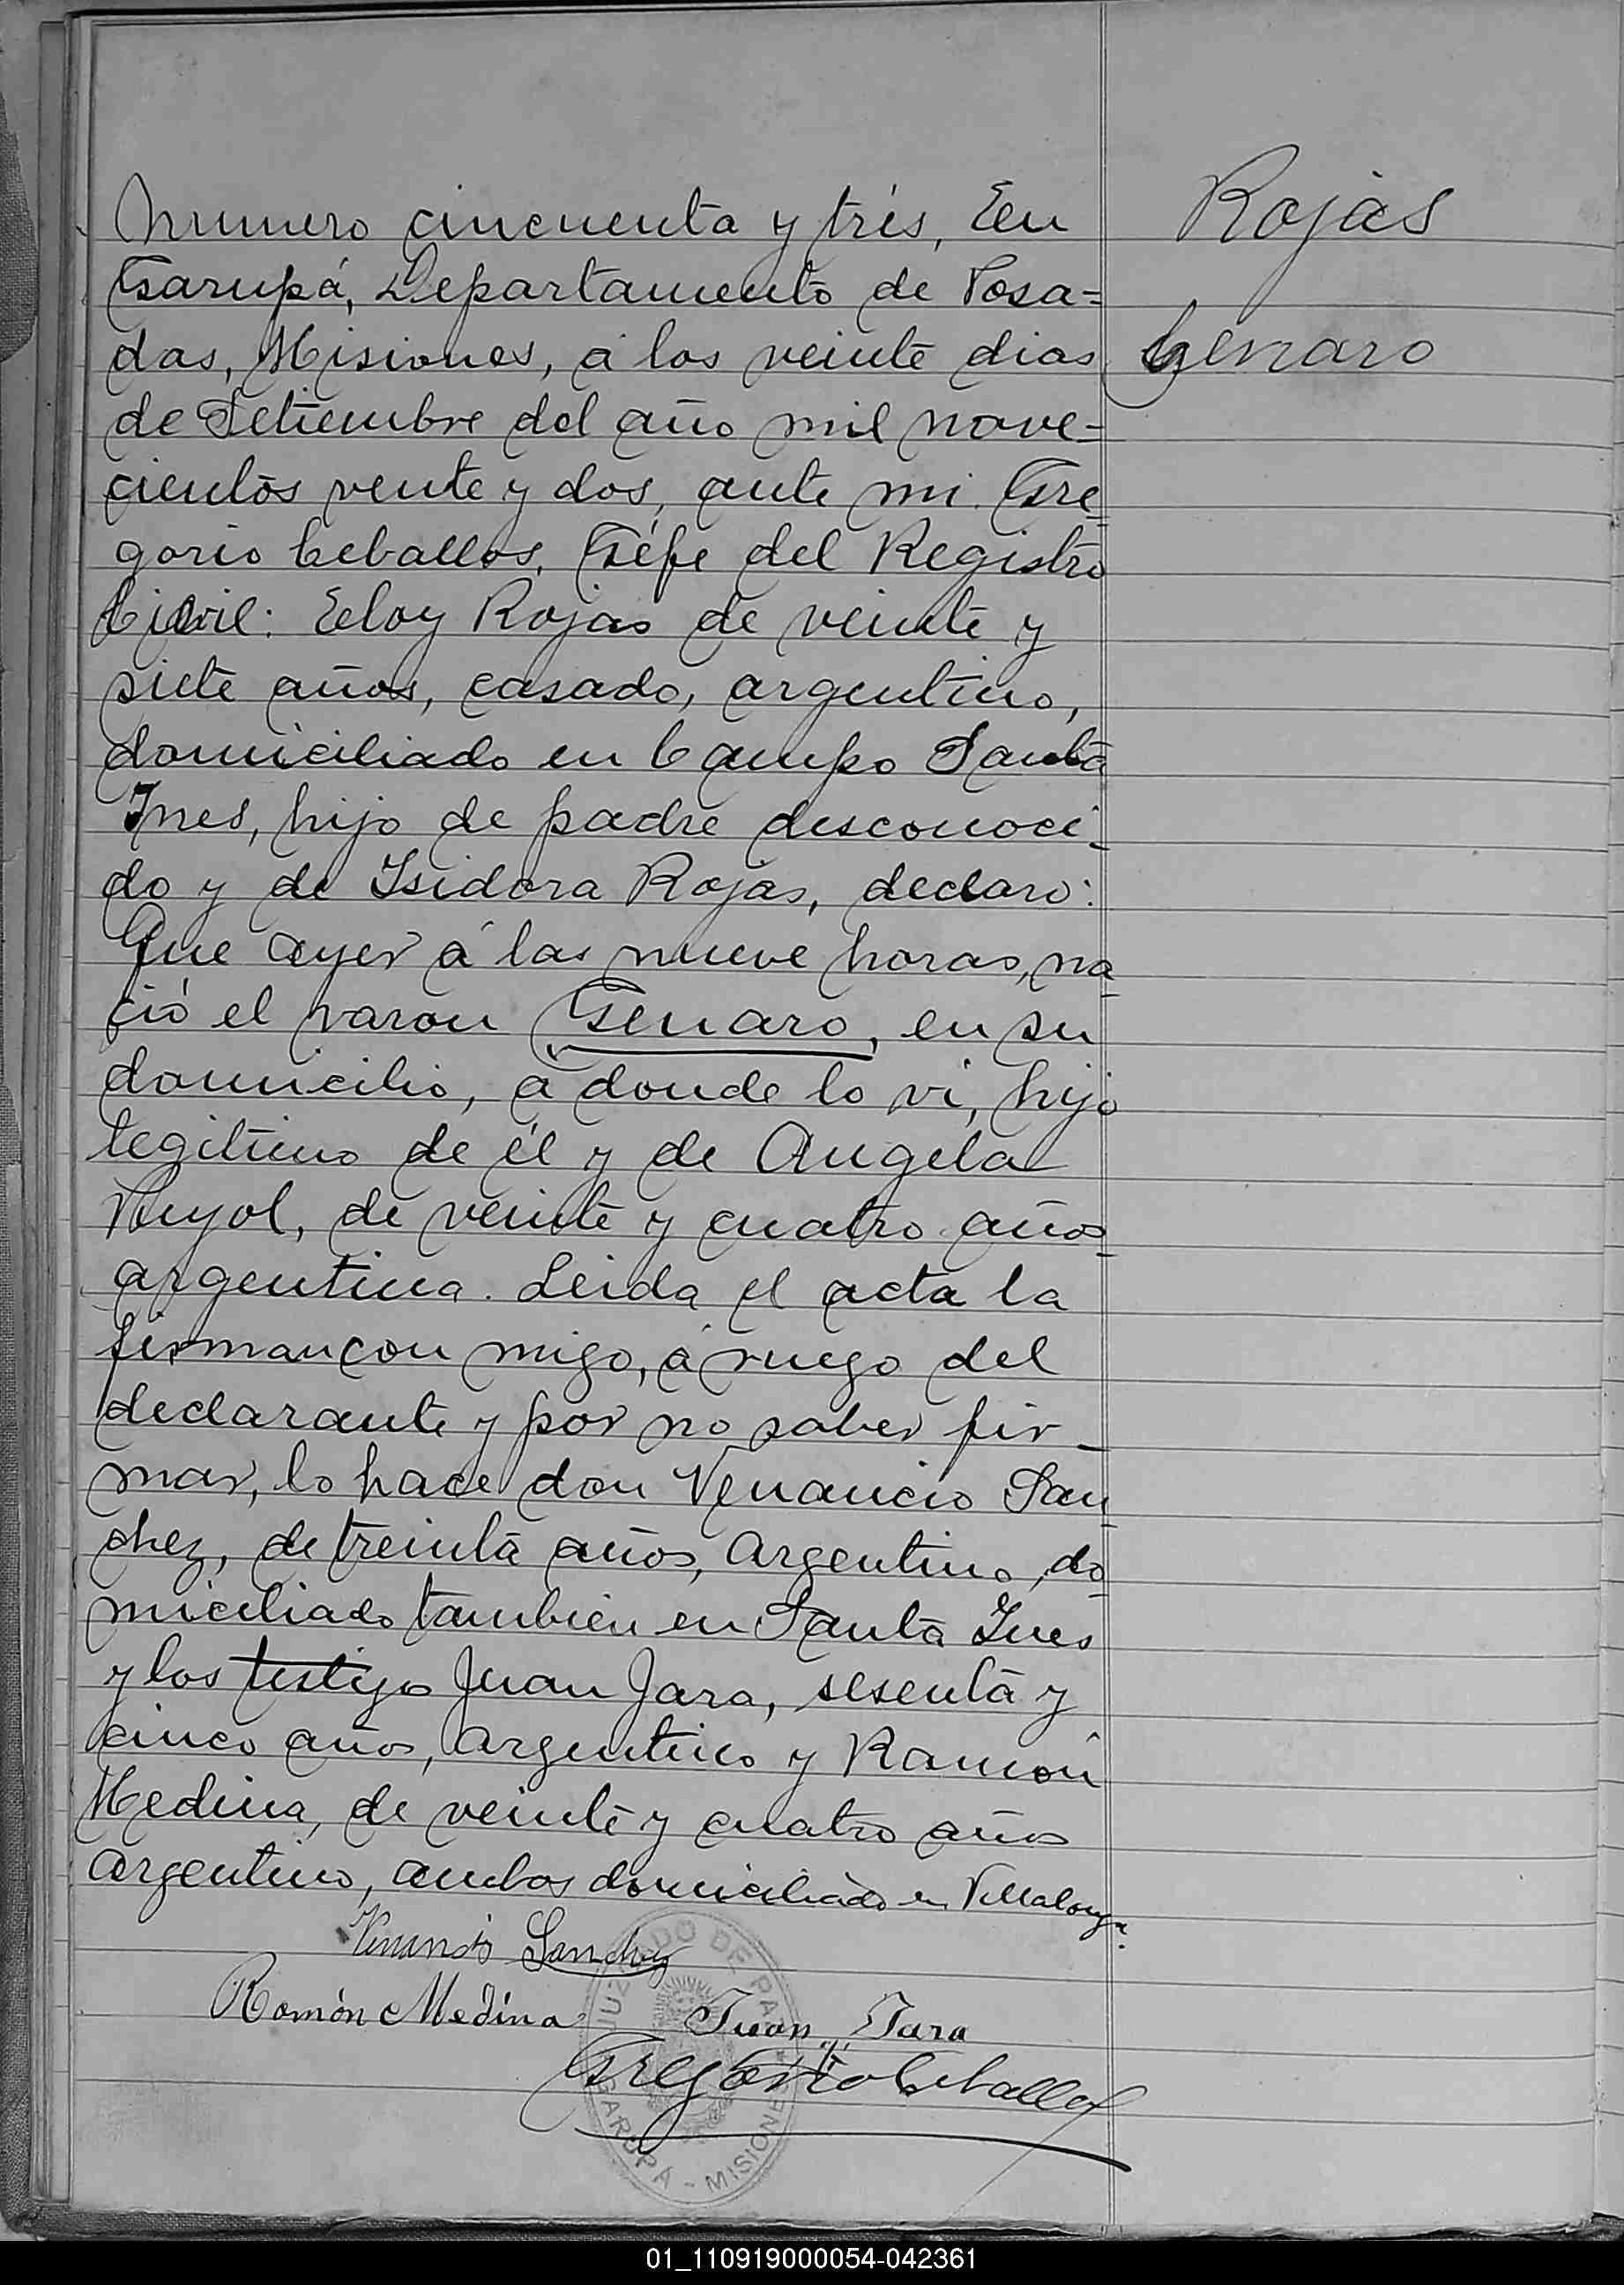 Numero cincuenta y trés, En
Garupá, Departamento de Posa=
das, Misiones, á los veinte dias
de Setiembre del año mil nove-
cientos vente y dos, ante mi Gre-
gorio Ceballos, Géfe del Registro
Civil: Eloy Rojas de veinte y
siete años, casado, argentino,
domiciliado en Campo Santa
Ines, hijo de padre desconoci-
do y de Isidora Rojas, declaro:
Que ayer á las nueve horas, na-
ció el varon Genaro, en su
domicilio, á donde lo vi, hijo
legitimo de él y de Angela
de veinte y cuatro años
argentina. Leida el acta la
firman con migo, á ruego del
declarante y por no saber fir-
mar, lo hace don Venancio San-
chez, de treinta años, Argentino, do-
miciliado tambien en Santa Ines
y los testigo Juan Jara, sesenta y
cinco años, Argentino y Ramón
Medina, de veinte y cuatro años
Argentino, ambos domiciliado en Villalonga.
Rojas
Genaro
Sanchez
Ramón Medina Juan Jara
Gregorio Ceballos
JUZGADO DE PAZ
GARUPÁ - MISIONES
01_110919000054-042361